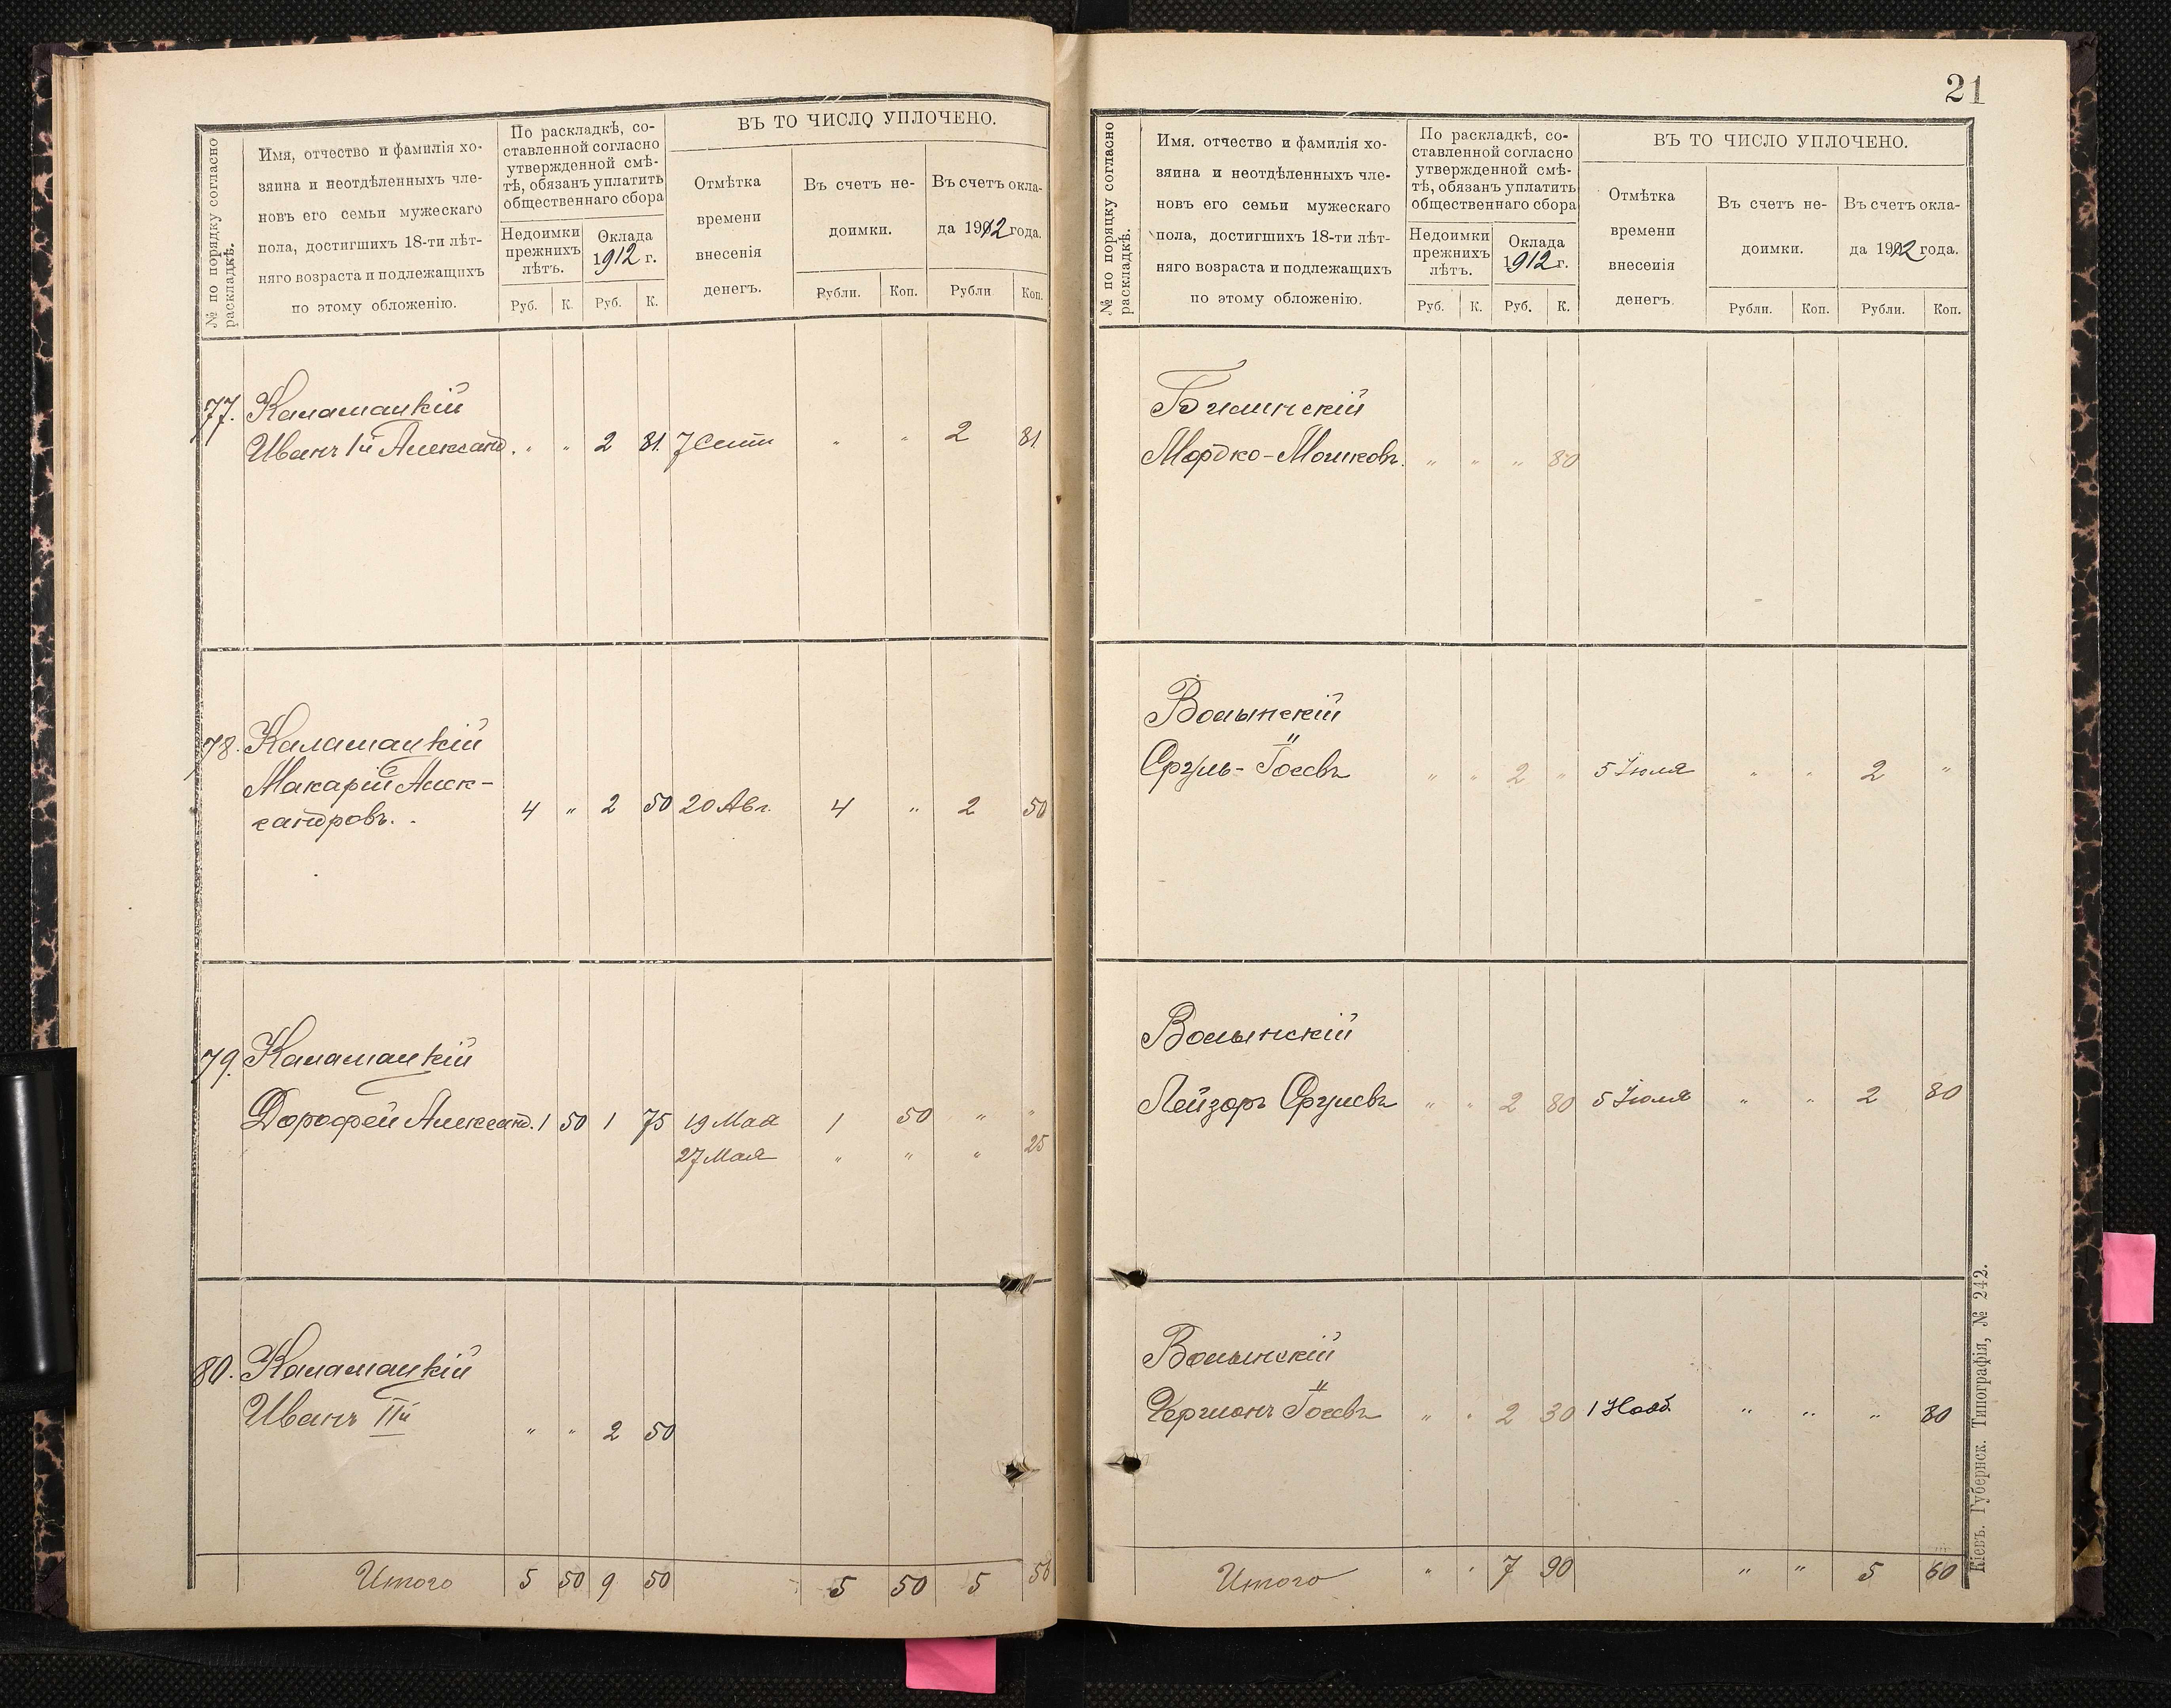 № по порядку согласно
раскладкѣ.
Имя, отчество и фамилія хо-
зяина и неотдѣленныхъ чле-
новъ его семьи мужескаго
пола, достигшихъ 18-ти лѣт-
няго возраста и подлежащихъ
по этому обложенію.
По раскладкѣ, со-
ставленной согласно
утвержденной смѣ-
тѣ, обязанъ уплатить
общественнаго сбора
Недоимки
прежнихъ
лѣтъ.
Оклада
1912 г.
Руб. К. Руб. К.
ВЪ ТО ЧИСЛО УПЛОЧЕНО.
Отмѣтка
времени
внесенія
денегъ.
Въ счетъ не-
доимки.
Въ счетъ окла-
да 1912 года.
Рубли. Коп. Рубли Коп.
77. Каламацкій
Иванъ 1й Александ. " " 2 81 7 Сент " " 2 81
78. Каламацкій
Макарій Алек-
сандровъ. 4 " 2 50 20 Авг. 4 " 2 50
79. Каламацкій
Дорофей Александ. 1 50 1 75 19 Мая 1 50 " "
27 Мая " " " 25
80. Каламацкій
Иванъ IIй " " 2 50
Итого 5 50 9 50 5 50 5 50
21
№ по порядку согласно
раскладкѣ.
Имя. отчество и фамилія хо-
зяина и неотдѣленныхъ чле-
новъ его семьи мужескаго
пола, достигшихъ 18-ти лѣт-
няго возраста и подлежащихъ
по этому обложенію.
По раскладкѣ, со-
ставленной согласно
утвержденной смѣ-
тѣ, обязанъ уплатить
общественнаго сбора
Недоимки
прежнихъ
лѣтъ.
Оклада
1912 г.
Руб. К. Руб. К.
ВЪ ТО ЧИСЛО УПЛОЧЕНО.
Отмѣтка
времени
внесенія
денегъ.
Въ счетъ не-
доимки.
Въ счетъ окла-
да 1912 года.
Рубли. Коп. Рубли. Коп.
Билинскій
Мордко-Мошковъ. " " " 80
Волынскій
Сруль-Іосевъ " " 2 " 5 Іюля " " 2 "
Волынскій
Лейзоръ Срулевъ " " 2 80 5 Іюля " " 2 80
Волынскій
Іосевъ " " 2 30 1 Нояб. " " " 80
Итого " " 7 90 " " 5 60
Кіевъ. Губернск. Типографія, № 242.